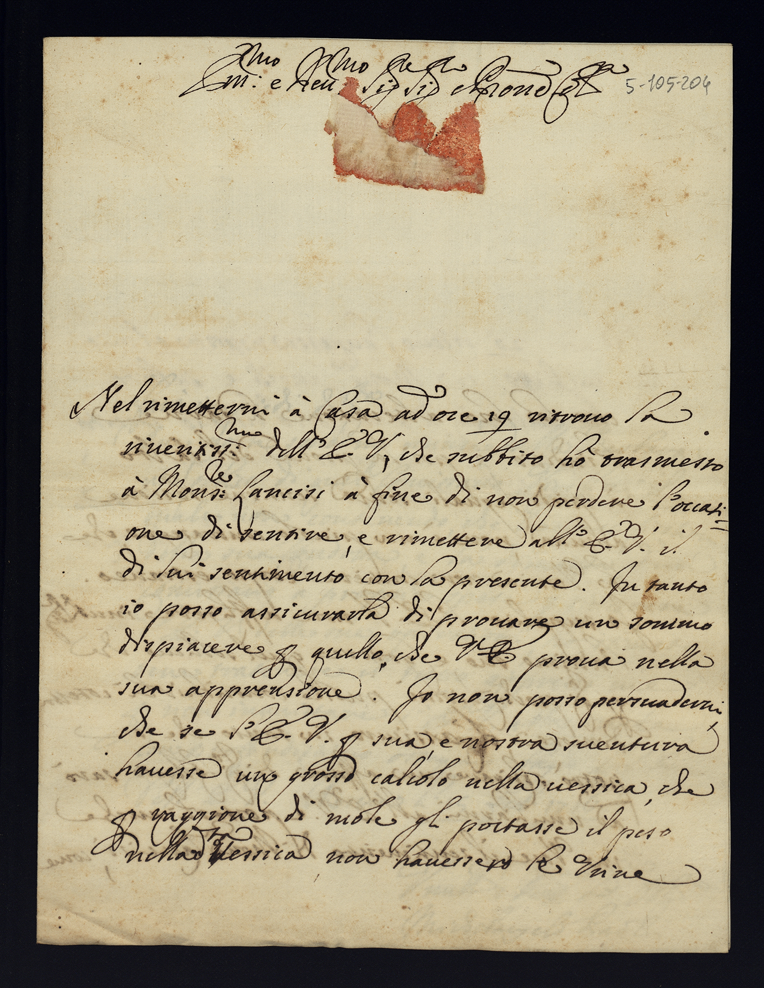 Em:mo e Reu:mo Sig.re Sig.re e Prone Col.mo
5-105-204
Nel rimettermi à Casa ad ore 19 ritrovo la
riveritiss:ma dell'E.V., che subbito hò trasmesso
à Mons:re Lancisi à fine di non perdere l'occasi=
one di sentire, e rimettere all'E.V. il
di lui sentimento con la presente. In tanto
io posso assicurarla di provare un sommo
dispiacere p quello, che V.E. prova nella
sua apprensione. Io non posso persuadermi,
che se l'E.V. p sua, e nostra sventura
havesse un grosso calcolo nella vessica, che
p raggione di mole gli portasse il peso
nella Vessica non havessero le Urine